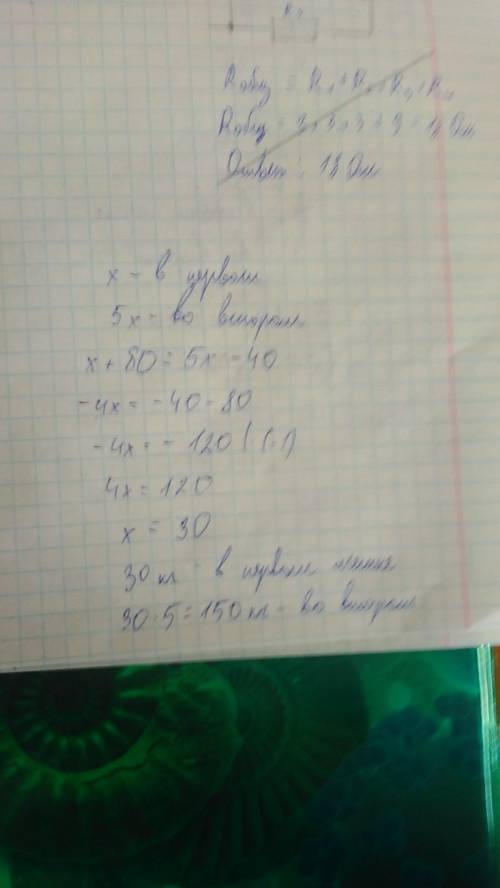 Rобщ = R₁ + R₂ + R₃ + R₄
Rобщ = 3 + 3 + 3 + 3 = 12 Ом
Ответ: 12 Ом
x - в первом
5x - во втором
x + 80 = 5x - 40
-4x = -40 - 80
-4x = - 120 | (-1)
4x = 120
x = 30
30 кг - в первом мешке
30 · 5 = 150 кг - во втором